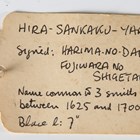 HIRA-SANKAKU-YA
Signed: HARIMA-NO-DA
FUJIWARA NO
SHIGETA
Name common to 3 smiths
between 1625 and 1700
Blade l: 7"